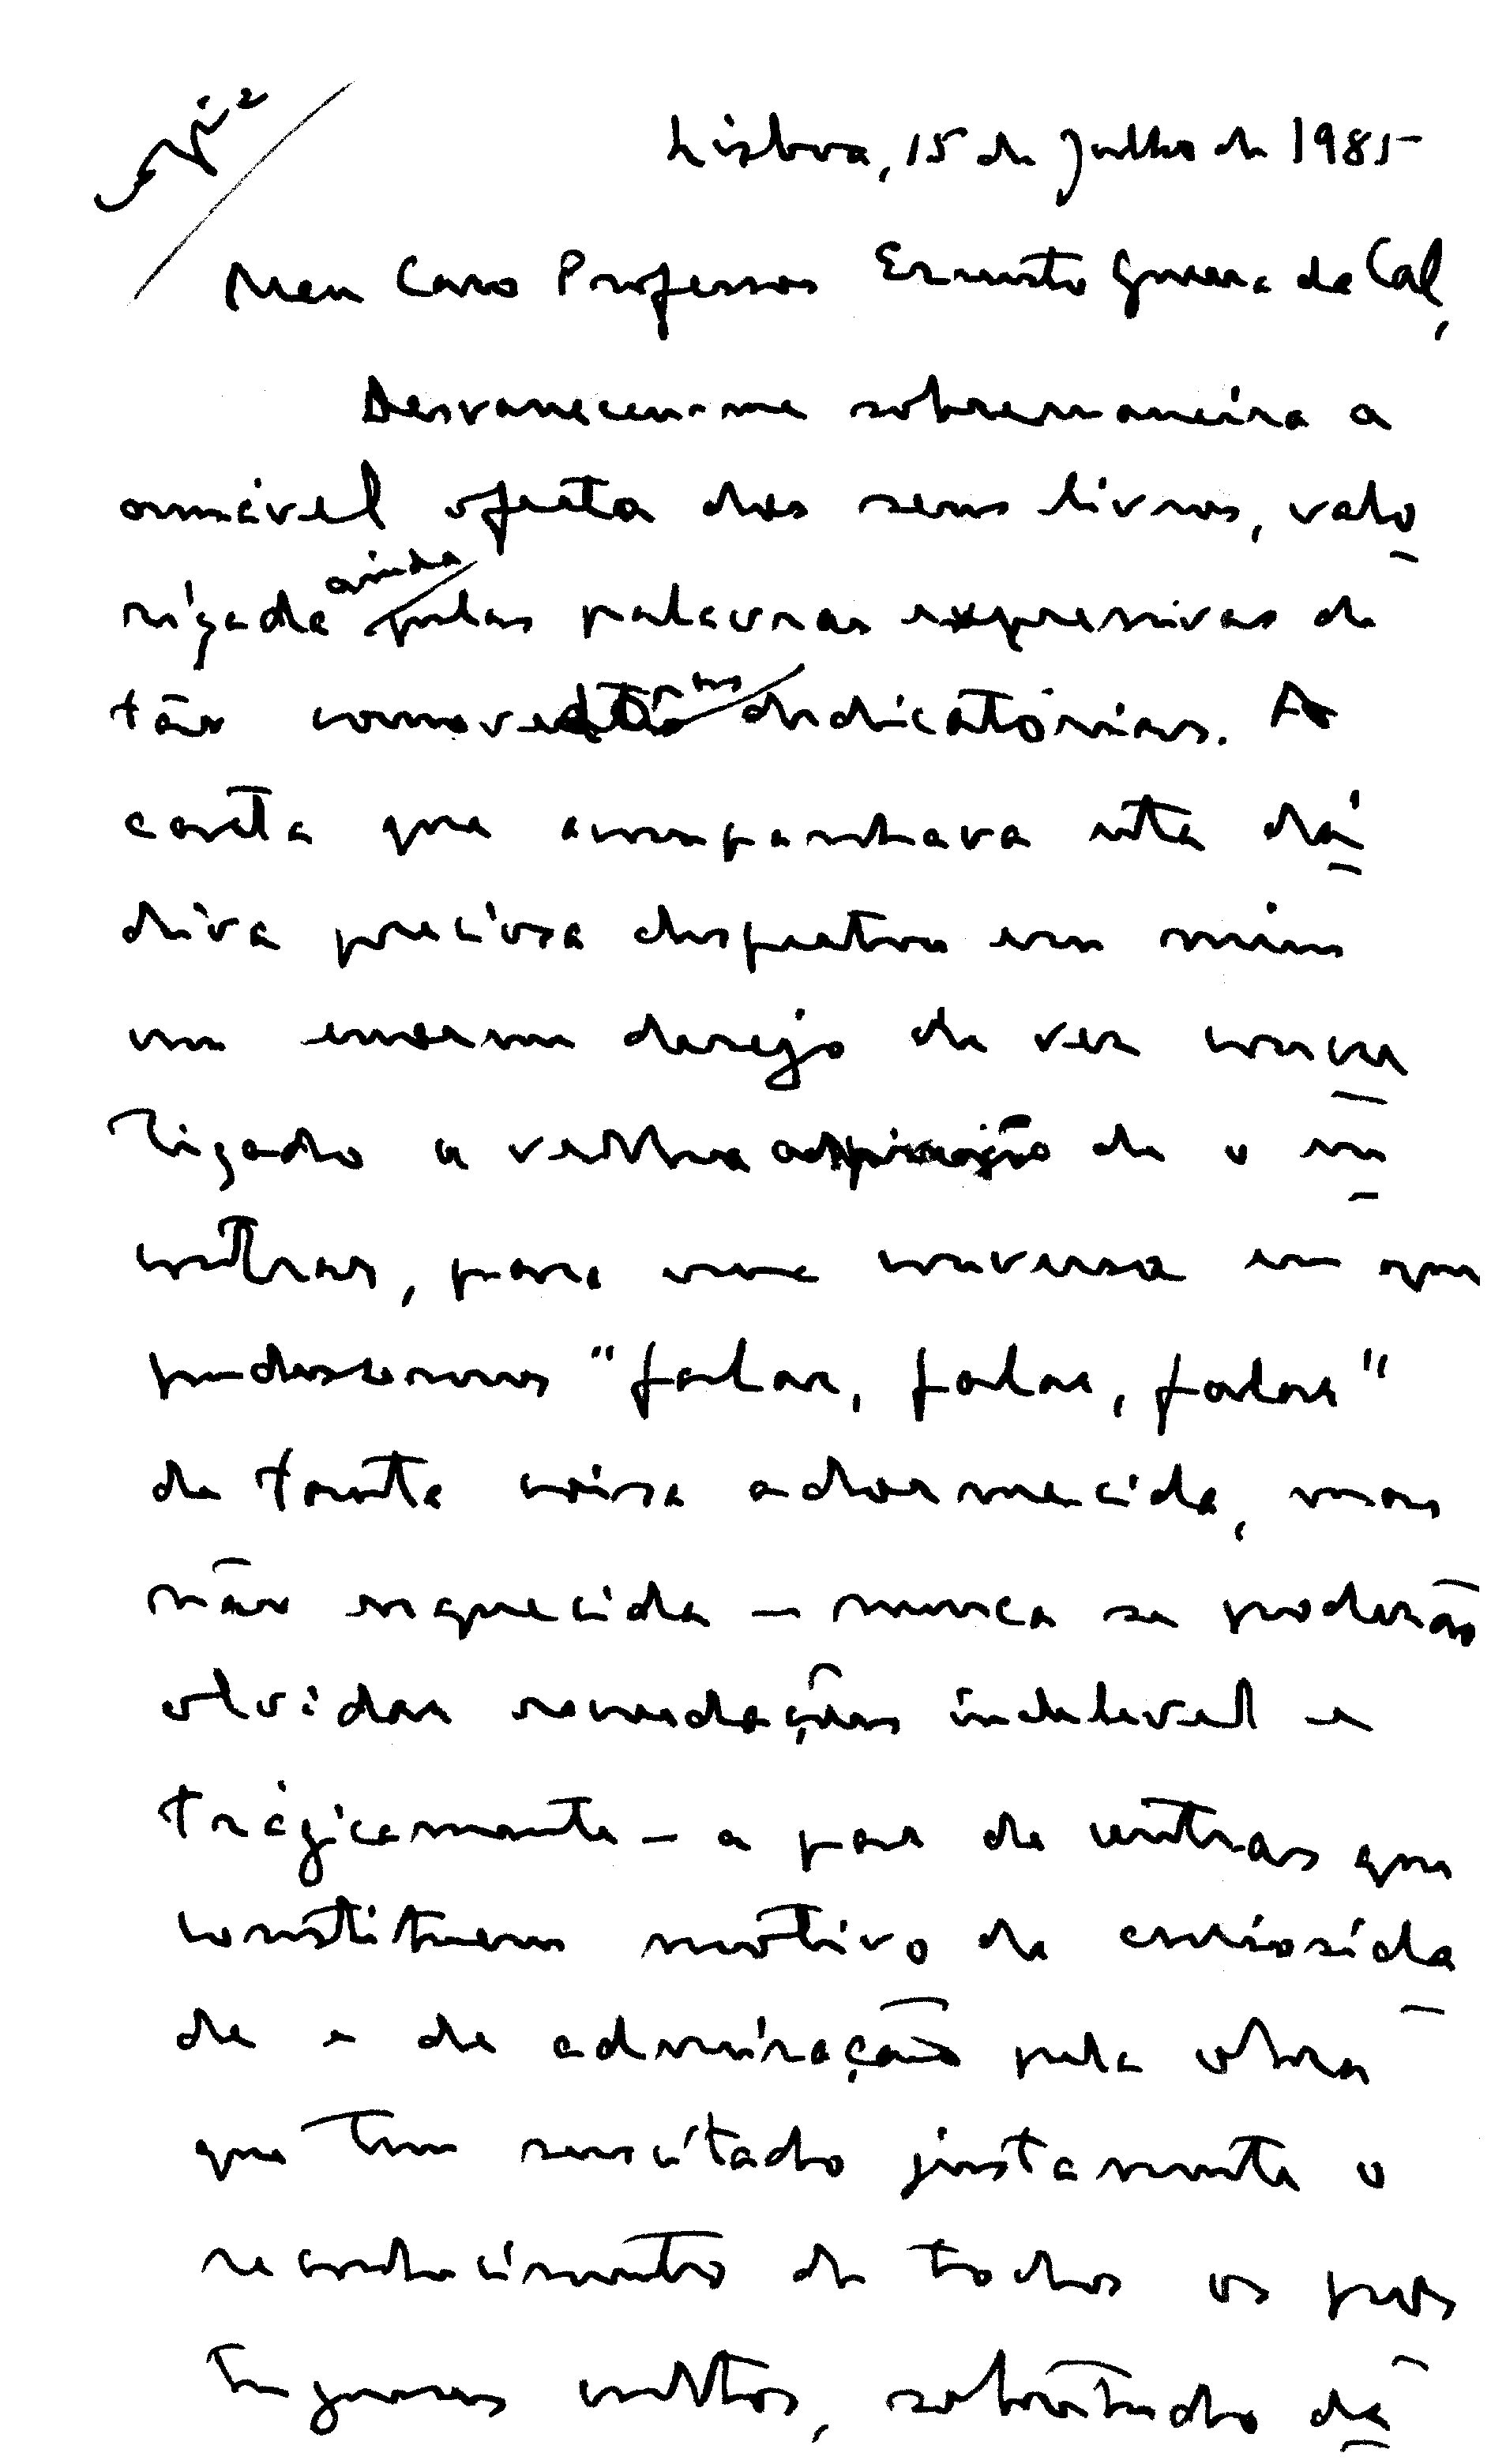 Lisboa, 15 de Julho de 1985
Meu Caro Professor Ernesto Guerra da Cal,
Desvaneceu-me sobremaneira a
amável oferta dos seus livros, valo
rizada ainda pelas palavras expressivas de
tão comovedoras dedicatórias. A
carta que acompanhava esta dá
diva preciosa despertou em mim
um enorme desejo de ver concre
tizado a velha aspiração de o en
contrar, para uma conversa em que
pudessemos "falar, falar, falar"
de tanta coisa adormecida, mas
não esquecida — nunca se poderão
olvidar recordações indelevel e
trágicamente — a par de outras que
constituem motivo de curiosida
de e de admiração pela obra
que tem suscitado justamente o
reconhecimento de todos os por
tugueses cultos, sobretudo da